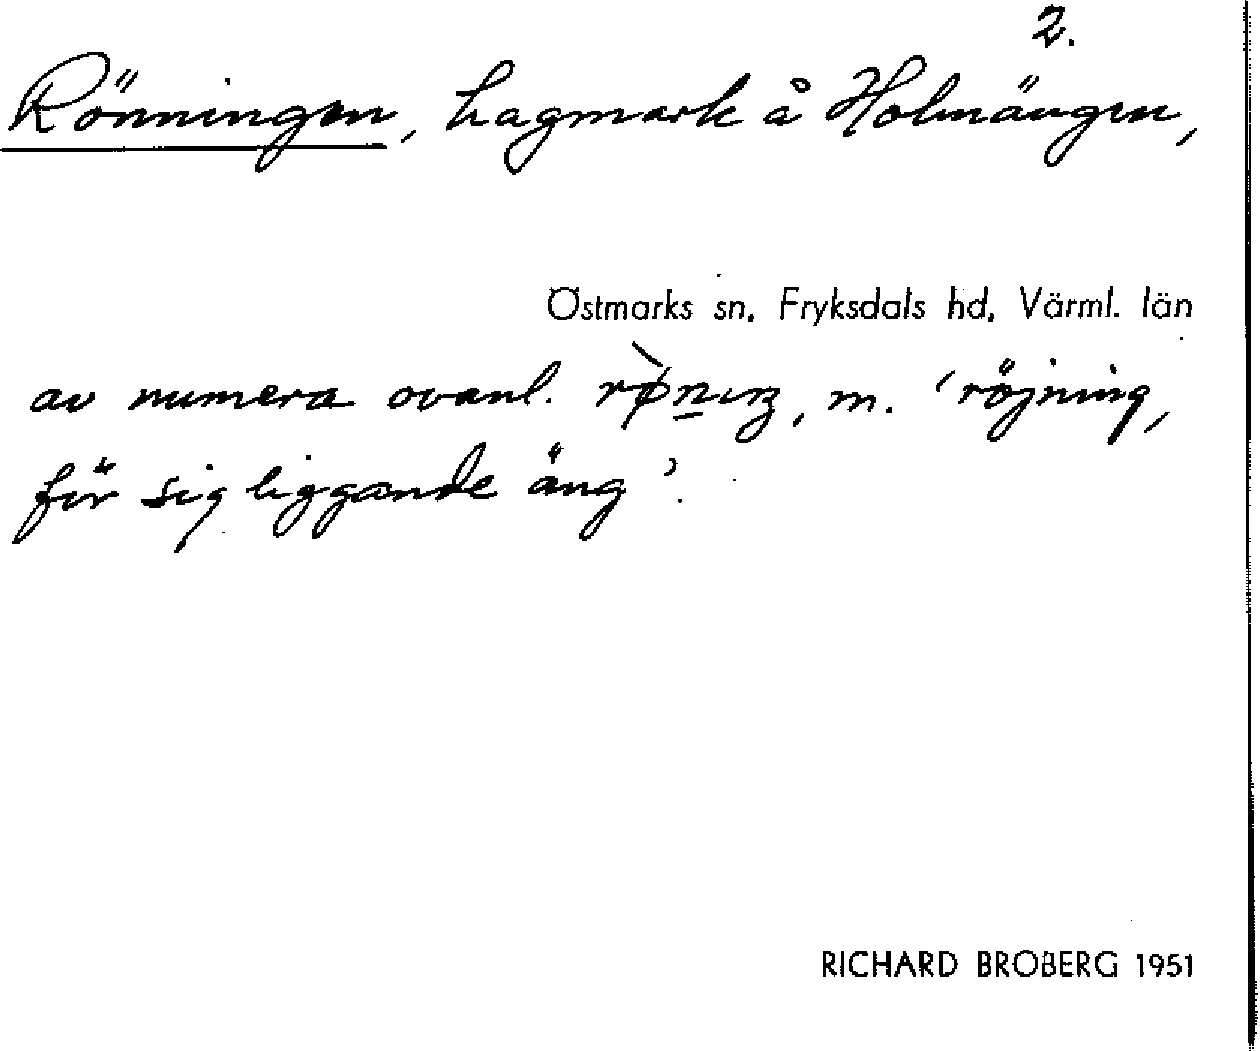 2.
Rönningen, hagmark å Holmängen,
Östmarks sn, Fryksdals hd, Värml. län
av numera ovanl. rø̀nıŋ, m. 'röjning,
för sig liggande äng'.
RICHARD BROBERG 1951